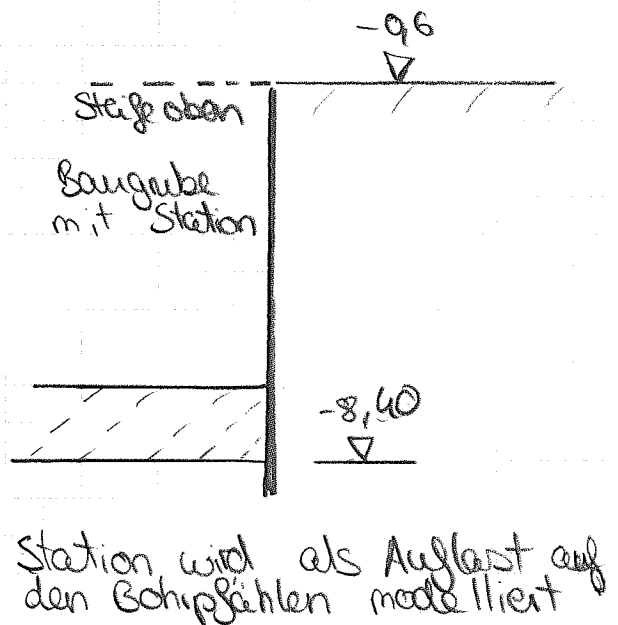 -0,6
Steife oben
Baugrube
mit Station
-8,40
Station wird als Auflast auf
den Bohrpfählen modelliert